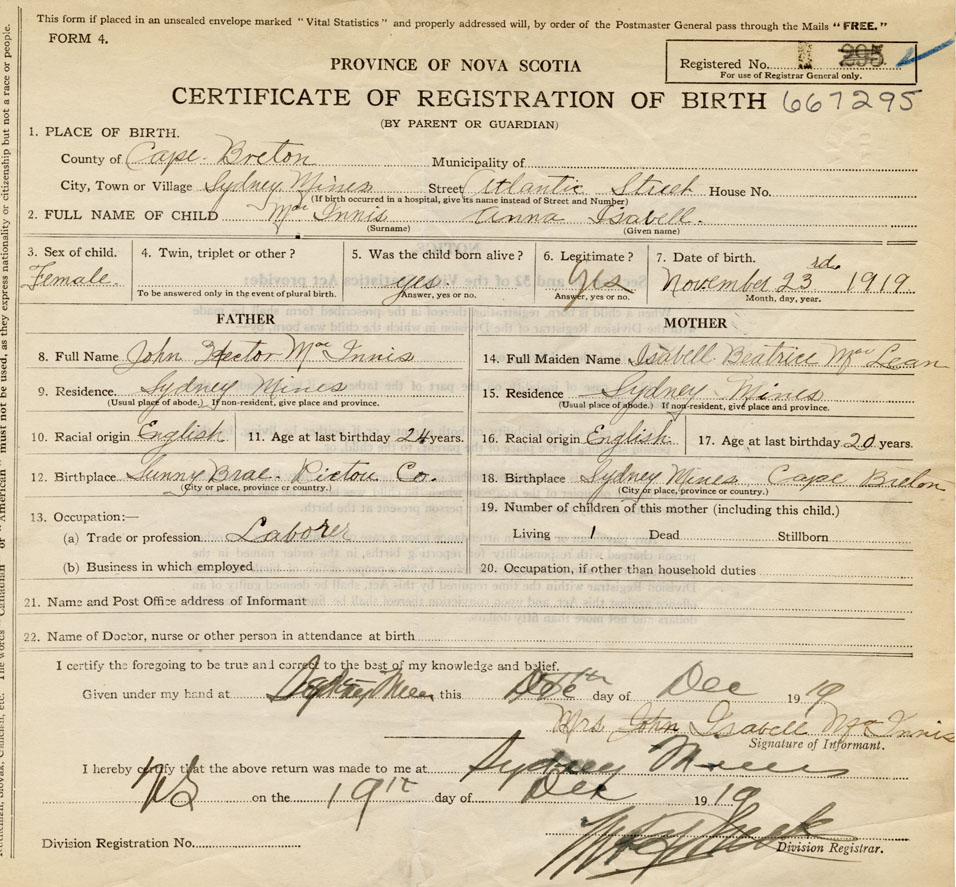 This form if placed in an unsealed envelope marked "Vital Statistics" and properly addressed will, by order of the Postmaster General pass through the Mails "FREE."
FORM 4.
Registered No. 295
For use of Registrar General only.
PROVINCE OF NOVA SCOTIA
CERTIFICATE OF REGISTRATION OF BIRTH 667295
(BY PARENT OR GUARDIAN)
1. PLACE OF BIRTH.
County of Cape Breton Municipality of
City, Town or Village Sydney Mines Street Atlantic Street House No.
(If birth occurred in a hospital, give its name instead of Street and Number)
2. FULL NAME OF CHILD MacInnis Anna Isabell.
(Surname) (Given name)
3. Sex of child. 4. Twin, triplet or other? 5. Was the child born alive? 6. Legitimate? 7. Date of birth.
Female. yes yes November 23rd 1919
To be answered only in the event of plural birth. Answer, yes or no. Answer, yes or no. Month, day, year.
FATHER MOTHER
8. Full Name John Hector MacInnis 14. Full Maiden Name Isabell Beatrice MacLean
9. Residence Sydney Mines 15. Residence Sydney Mines
(Usual place of abode.) If non-resident, give place and province. (Usual place of abode.) If non-resident, give place and province.
10. Racial origin English 11. Age at last birthday 24 years. 16. Racial origin English 17. Age at last birthday 20 years.
12. Birthplace Sunny Brae. Pictou Co. 18. Birthplace Sydney Mines Cape Breton
(City or place, province or country.) (City or place, province or country.)
13. Occupation:— 19. Number of children of this mother (including this child.)
(a) Trade or profession Laborer Living 1 Dead Stillborn
(b) Business in which employed 20. Occupation, if other than household duties
21. Name and Post Office address of Informant
22. Name of Doctor, nurse or other person in attendance at birth
I certify the foregoing to be true and correct to the best of my knowledge and belief.
Given under my hand at this day of Dec 1919
Mrs John Isabell MacInnis
Signature of Informant.
I hereby certify that the above return was made to me at Sydney Mines
NS on the 19th day of Dec 1919
Division Registration No. Division Registrar.